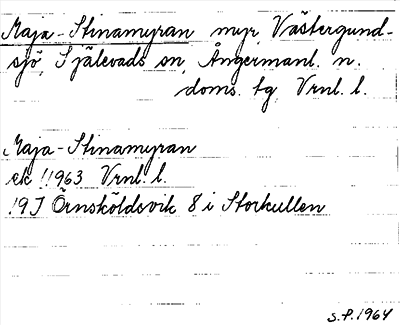 Maja-Stinamyran myr, Västergund-
sjö, Själevads sn, Ångermanl. n.
doms. fg. Vrnl. l.
Maja-Stinamyran
ek !1963 Vrnl. l.
19J Örnsköldsvik 8 i Storkullen
S.P. 1964